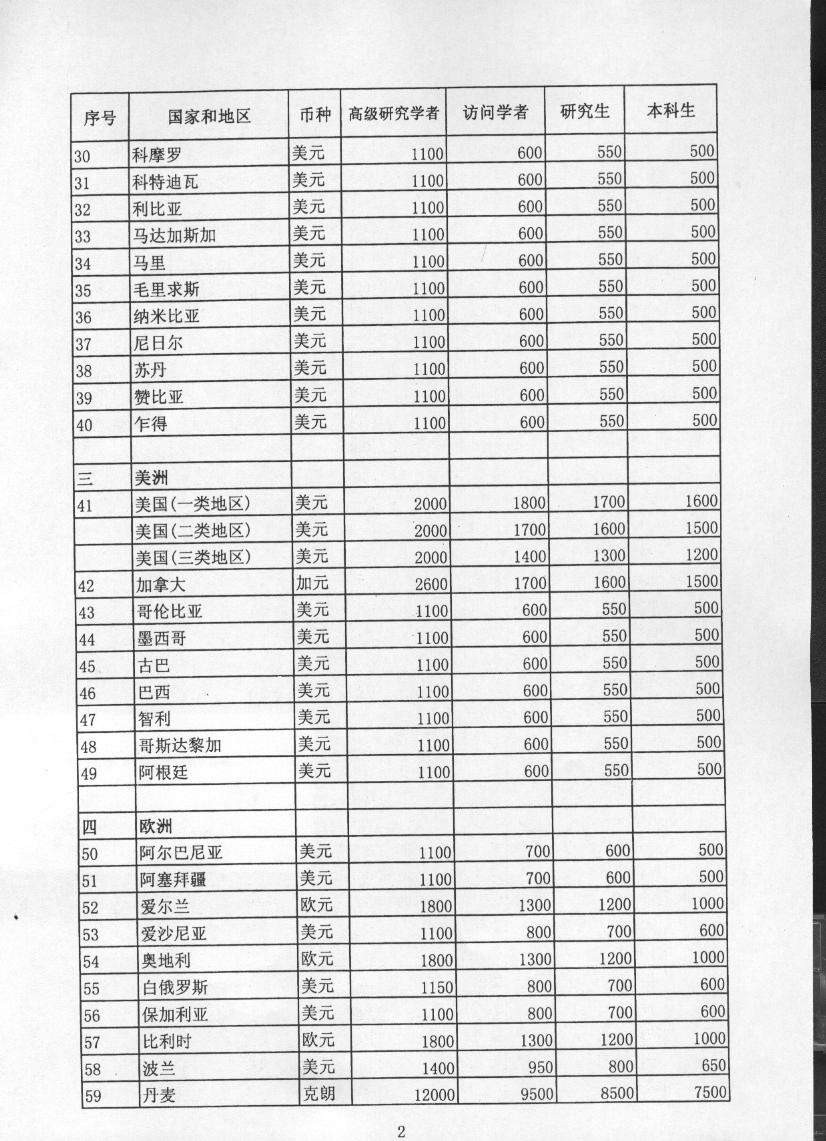 序号 国家和地区 币种 高级研究学者 访问学者 研究生 本科生
30 科摩罗 美元 1100 600 550 500
31 科特迪瓦 美元 1100 600 550 500
32 利比亚 美元 1100 600 550 500
33 马达加斯加 美元 1100 600 550 500
34 马里 美元 1100 600 550 500
35 毛里求斯 美元 1100 600 550 500
36 纳米比亚 美元 1100 600 550 500
37 尼日尔 美元 1100 600 550 500
38 苏丹 美元 1100 600 550 500
39 赞比亚 美元 1100 600 550 500
40 乍得 美元 1100 600 550 500
三 美洲
41 美国(一类地区) 美元 2000 1800 1700 1600
美国(二类地区) 美元 2000 1700 1600 1500
美国(三类地区) 美元 2000 1400 1300 1200
42 加拿大 加元 2600 1700 1600 1500
43 哥伦比亚 美元 1100 600 550 500
44 墨西哥 美元 1100 600 550 500
45 古巴 美元 1100 600 550 500
46 巴西 美元 1100 600 550 500
47 智利 美元 1100 600 550 500
48 哥斯达黎加 美元 1100 600 550 500
49 阿根廷 美元 1100 600 550 500
四 欧洲
50 阿尔巴尼亚 美元 1100 700 600 500
51 阿塞拜疆 美元 1100 700 600 500
52 爱尔兰 欧元 1800 1300 1200 1000
53 爱沙尼亚 美元 1100 800 700 600
54 奥地利 欧元 1800 1300 1200 1000
55 白俄罗斯 美元 1150 800 700 600
56 保加利亚 美元 1100 800 700 600
57 比利时 欧元 1800 1300 1200 1000
58 波兰 美元 1400 950 800 650
59 丹麦 克朗 12000 9500 8500 7500
2